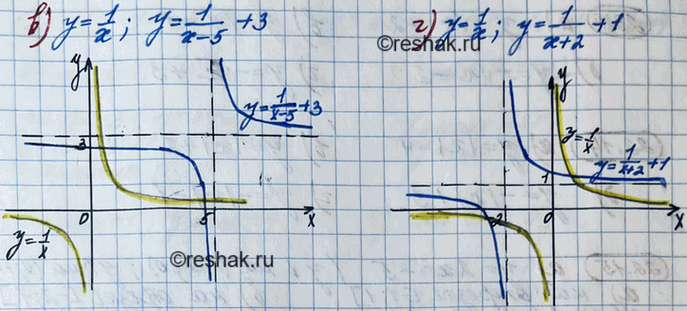 в) y = 1/x ; y = 1/(x-5) + 3
г) y = 1/x ; y = 1/(x+2) + 1
©reshak.ru
y
y = 1/(x-5) + 3
3
0
5
x
y = 1/x
©reshak.ru
y
y = 1/x
y = 1/(x+2) + 1
1
-2
0
x